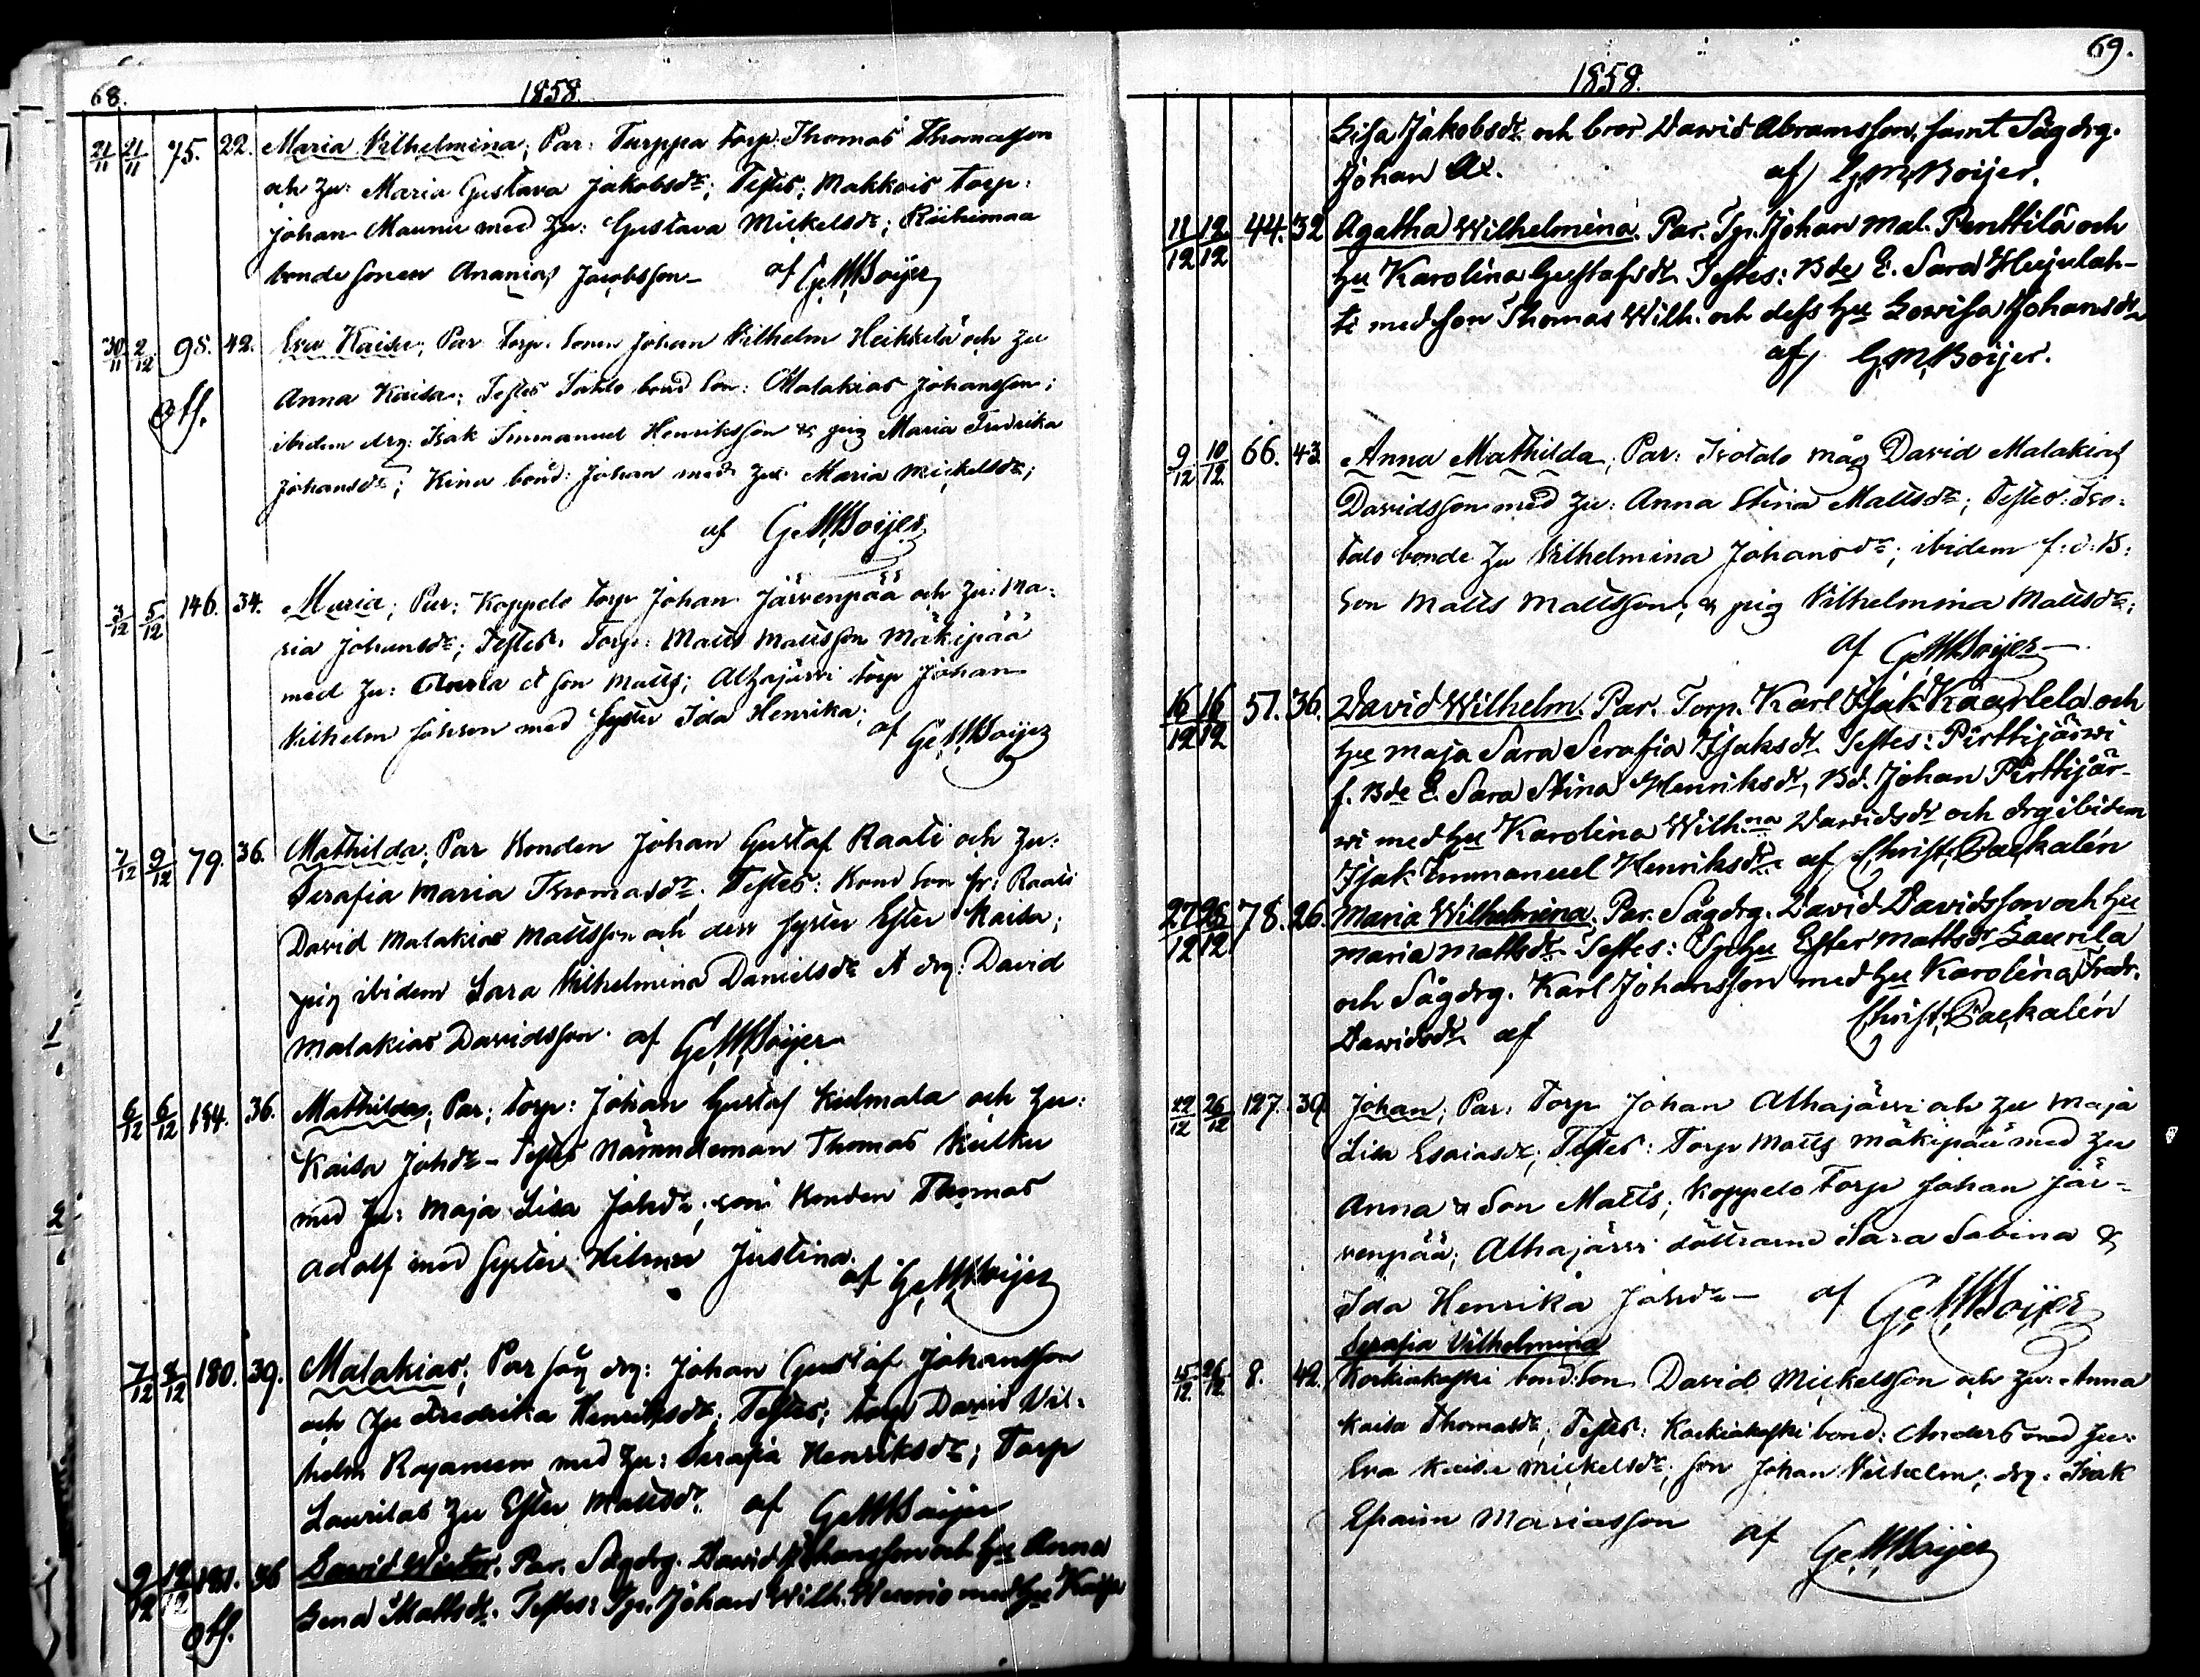 68.
1858.
21/11 21/11 75. 22. Maria Vilhelmina; Par: Turppa torp: Thomas Thomasson
och hu: Maria Gustava Jakobsdr; Testes: Makkois torp:
Johan Maunu med hu: Gustava Mickelsdr; Riihimaa
bonde sonen Ananias Jacobsson – af G.M.Boijer
30/11 2/12 98. 42. Eva Kaisa; Par torp. sonen Johan Vilhelm Heikkilä och hu
Anna Kaisa; Testes bond son: Malakias Johansson;
ibidem drg: Isak Immanuel Henriksson & pig Maria Fredrika
Johansdr; Kina bond: Johan med hu: Maria Mickelsdr;
af G.M.Boijer
3/12 5/12 146. 34. Maria; Par: Koppelo torp Johan Järvenpää och hu: Ma-
ria Johansdr; Testes. Torp: Matts Mattsson Mäkipää
med hu: et son Matts; Alhajärvi torp Johan
Vilhelm med syster Ida Henrika;
af G.M.Boijer
7/12 9/12 79. 36. Mathilda; Par Bonden Johan Gustaf Raati och hu:
Serafia Maria Thomasdr. Testes: Bond son fr: Raati
David Malakias Mattsson och dess syster Ester Kaisa;
pig ibidem Sara Vilhelmina Danielsdr & drg: David
Malakias Davidsson. af G.M.Boijer
6/12 6/12 184. 36. Mathilda; Par: torp: Johan Gustaf Kulmala och hu:
Kaisa Johdr – Testes Nämndeman Thomas Kulku
med hu: Maja Lisa Johdr; Bonden Thomas
Adolf med syster Hilma Justina.
af G.M.Boijer
7/12 8/12 180. 39. Malakias; Par såg drg: Johan Gustaf Johansson
och hu Fredrika Henriksdr; Testes; torp David Vil-
helm Rajaniem med hu: Serafia Henriksdr; Torp
Laurilas hu Ester Mattsdr. af G.M.Boijer
9/12 12/12 181. 36 David Wictor. Par. Sågdrg. David Johansson och hu Anna
Lena Mattsdr. Testes: Tp. Johan Wilh. Wuorio med hu Kaisa
69.
1858.
Lisa Jakobsdr och bror Dawid Abramsson, samt Sågdrg.
Johan Ax. af G.M.Boijer.
11/12 12/12 44. 32 Agatha Wilhelmina. Par. Tp. Johan Mal. Penttilä och
hu Karolina Gustafsdr. Testes: Bde E. Sara Heijulah-
ti med son Thomas Wilh. och dess hu Lowisa Johansdr
af G.M.Boijer.
9/12 10/12 66. 43. Anna Mathilda; Par: Isotalo måg David Malakias
Davidsson med hu: Anna Stina Mattsdr; Testes: Iso-
talo bonde hu Vilhelmina Johansdr; ibidem f: d: B:
son Matts Mattsson; & pig Vilhelmina Mattsdr;
af G.M.Boijer –
16/12 16/12 51. 36. David Wilhelm. Par. Torp. Karl Isak Kaarlela och
hu Maja Sara Serafia Isaksdr. Testes: Pirttijärwi
f. Bde E. Sara Stina Henriksdr, Bd. Johan Pirttijär-
wi med hu Karolina Wilh.na Dawidsdr och drg ibidem
Isak Emmanuel Henriksdr. af Christ. Paekalén
27/12 28/12 78. 26. Maria Wilhelmina. Par. Sågdrg. David Davidsson och hu
Maria Mattsdr. Testes: Tp hu Ester Mattsdr Laurila
och Sågdrg. Karl Johansson med hu Karolina Fredr.
Dawidsdr. af Christ. Paekalén
22/12 26/12 127. 39. Johan; Par: Torp Johan Alhajärvi och hu Maja
Lisa Esaiasdr; Testes: Torp Matts Mäkipää med hu
Anna & son Matts; Koppelo Torp Johan Jär-
venpää; Alhajärvi döttrarne Sara Sabina &
Ida Henrika – af G.M.Boijer
Serafia Vilhelmina
15/12 26/12 8. 42. Korkiakoski bond: son David Mickelsson och hu: Anna
Kaisa Thomasdr; Testes: Korkiakoski bond: Anders med hu:
Eva Kaisa Mickelsdr; son Johan Vilhelm; drg: Isak
Efraim Mariasson af G.M.Boijer